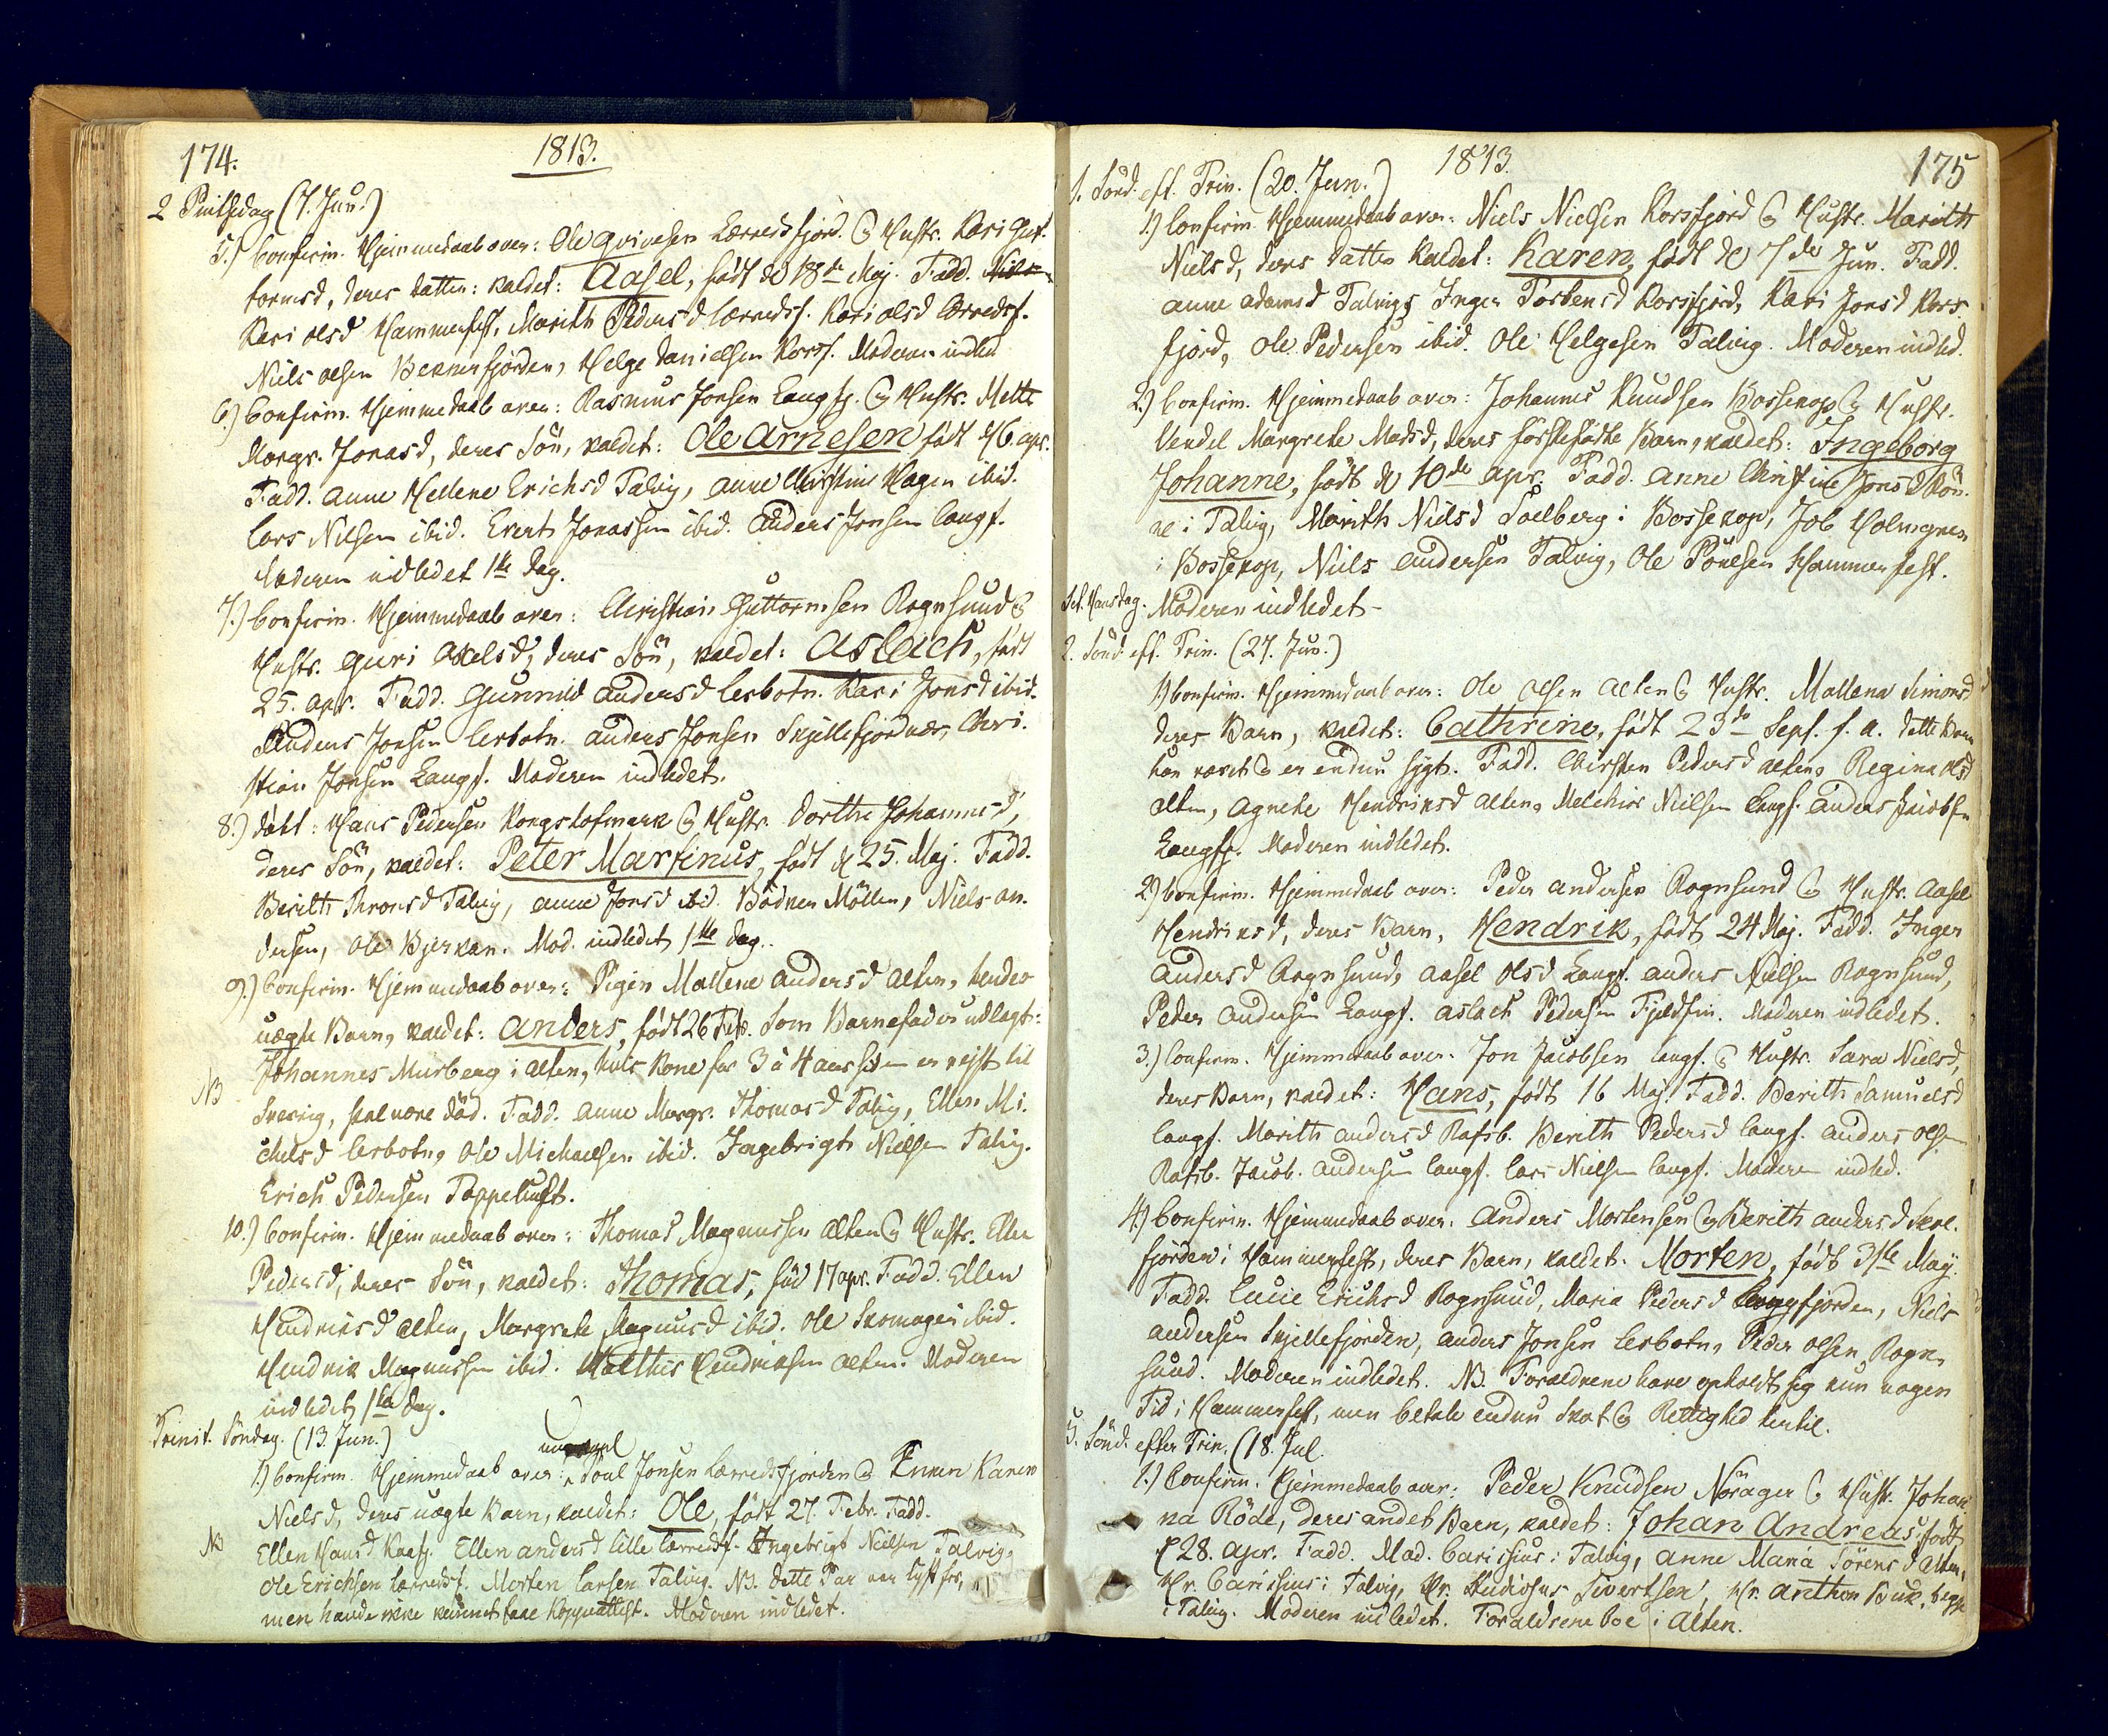 174.
1813.
2 Pintsedag (7. Jun.)
5.) Confirm. Hjemmedaab over: Ole Qvivesen Lerredsfjord. & Hustr. Kari Gut-
tormsd, deres datter: kaldet: Aasel, født d 18de Maj. Fadd.
Kari Olsd Hammerfest, Marith Pedersd Lerredsf. Kari Olsd Lerredsf.
Niels Olsen Bekkerfjorden, Helge Danielsen Korsf. Moderen indled
6.) Confirm. Hjemmedaab over: Rasmus Jonsen Langfj. & Hustr. Mette
Margr. Jonasd, deres Søn, kaldet: Ole Arnesen født d 6. Apr.
Fadd. Anne Hellene Erichsd Talvig, Anne Christine Hagen ibid.
Lars Nilsen ibid. Evert Jonassen ibid. Anders Jonsen Langf.
Moderen indledet 1ste Dag.
7.) Confirm. Hjemmedaab over: Christian Guttormsen Rognsund &
Hustr. Guri Axelsd, deres Søn, kaldet: Aslach, født
25. Apr. Fadd. Gunnild Andersd Lerbotn. Kari Jonsd ibid.
Anders Jonsen Lerbotn. Anders Jonsen Skjellefjordnær, Chri-
stian Jonsen Langf. Moderen indledet.
8.) døbt: Hans Pedersen Kongshofmark & Hustr. Dorthe Johannesd,
deres Søn, kaldet: Peter Martinus, født d 25. Maj. Fadd.
Berith Thronsd Talvig, Anne Jonsd ibid. Bødker Møller, Niels An-
dersen, Ole Bjerkan. Mod. indledet 1ste Dag.
9.) Confirm. Hjemmedaab over: Pigen Mallene Andersd Alten, hendes
uægte Barn, kaldet: Anders, født 26 Febr. Som Barnefader udlagt:
Johannes Murberg i Alten, hvis Kone for 3 à 4 aar siden er rejst til
NB
Sverrig, skal være død. Fadd. Anne Margr. Thomasd Talvig, Ellen Mi-
chelsd Lerbotn, Ole Michaelsen ibid. Ingebrigt Nielsen Talvig.
Erich Pedersen Toppeluft.
10.) Confirm. Hjemmedaab over: Thomas Magnussen Alten & Hustr. Ellen
Pedersd, deres Søn, kaldet: Thomas, fød 17 Apr. Fadd. Ellen
Hendriksd Alten, Margrete Magnusd ibid. Ole Skomager ibid.
Hendrik Magnussen ibid. Matthis Hendriksen Alten. Moderen
indledet 1ste Dag.
Trinit. Søndag. (13. Jun.)
1.) Confirm. Hjemmedaab over: Poul Jonsen Lerredsfjorden & Karen
Nielsd, deres uægte Barn, kaldet: Ole, født 27. Febr. Fadd.
NB
Ellen Hansd Kaafj. Ellen Andersd Lille Lerredsf. Ingebrigt Nielsen Talvig,
Ole Erichsen Lerredsf. Morten Larsen Talvig. NB. Dette Par var lyst for,
men havde ikke kunnet faae Koppeattest. Moderen indledet.
1813.
175
1. Sønd. eft. Trin. (20. Jun.)
1.) Confirm. Hjemmedaab over: Niels Nielsen Korsfjord & Hustr. Marith
Nielsd, deres datter kaldet: Karen, født d 7de Jun. Fadd.
Anne Adamsd Talvig, Inger Torbensd Korsfjord, Kari Jonsd Kors-
fjord, Ole Pedersen ibid. Ole Helgesen Talvig. Moderen indled.
2.) Confirm. Hjemmedaab over: Johannes Knudsen Bossekop & Hustr.
Vendel Margrete Madsd, deres førstefødte Barn, kaldet: Ingeborg
Johanne, født d 10de Apr. Fadd. Anne Christine Jons
i Talvig, Marith Nielsd Soelberg i Bossekop, Job Holmgren
i Bossekop, Niels Andersen Talvig, Ole Povelsen Hammerfest.
Sct. Hansdag. Moderen indledet-
2. Sønd. eft. Trin. (27. Jun.)
1.) Confirm. Hjemmedaab over: Ole Olsen Alten & Hustr. Mallena Simonsd
deres Barn, kaldet: Cathrine, født 23de Sept. f. A. dette Barn
har været & er endnu sygt. Fadd. Kirsten Pedersd Alten, Regina Olsd
Alten, Agnete Hendriksd Alten, Melchior Nielsen Langf. Anders Jacobsen
Langfj. Moderen indledet.
2.) Confirm. Hjemmedaab over: Peder Andersen Rognsund & Hustr. Aasel
Hendriksd, deres Barn, Hendrik, født 24 Maj. Fadd. Inger
Andersd Rognsund, Aasel Olsd Langf. Anders Nielsen Rognsund,
Peder Andersen Langf. Aslach Pedersen Fjeldfin. Moderen indledet.
3.) Confirm. Hjemmedaab over: Jon Jacobsen Langf. & Hustr. Sara Nielsd,
deres Barn, kaldet: Hans, født 16 Maj. Fadd. Berith Samuelsd
Langf. Marith Andersd Rafsb. Berith Pedersd Langf. Anders Olsen
Rafsb. Jacob Andersen Langf. Lars Nielsen Langf. Moderen indled.
4.) Confirm. Hjemmedaab over: Anders Mortensen & Berith Andersd
fjorden i Hammerfest, deres Barn, kaldet: Morten, født 31te Maj.
Fadd. Lucie Erichsd Rognsund, Maria Pedersd Langfjorden, Niels
Andersen Skjellefjorden, Anders Jonsen Lerbotn, Peder Olsen Rogn-
sund. Moderen indledet. NB. Forældrene have opholdt sig nun nogen
Tid i Hammerfest, men betale endnu Skat & Rettighed hertil.
5. Sønd. efter Trin. (18. Jul.
1.) Confirm. Hjemmedaab over: Peder Knudsen Norager & Hustr. Johan-
na Røde, deres andet Barn, kaldet: Johan Andreas, født
d 28. Apr. Fadd. Mad. Carisius i Talvig, Anne Maria Sørensd Alten,
Hr. Carisius i Talvig, Hr. Studiosus Sivertsen, Hr. Anthon Buck, begge
i Talvig. Moderen indledet. Forældrene boe i Alten.